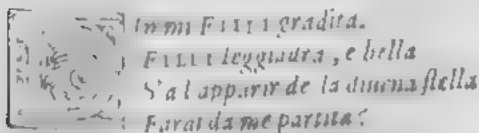 Immi FILLI gradita.
FILLI leggiadra, e bella
S'a l'apparir de la stella
Farai da me partita?